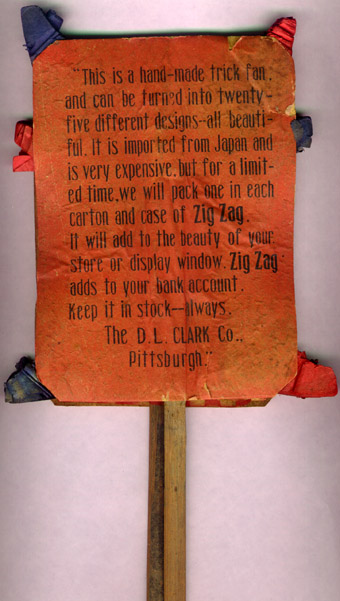 "This is a hand-made trick fan,
and can be turned into twenty-
five different designs-all beauti-
ful. It is imported from Japan and
is very expensive, but for a limit-
ed time, we will pack one in each
carton and case of Zig Zag.
It will add to the beauty of your
store or display window. Zig Zag
adds to your bank account.
Keep it in stock—always.
The D. L. CLARK Co.,
Pittsburgh."